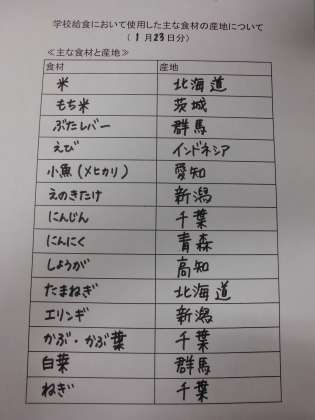 学校給食において使用した主な食材の産地について
(1月23日分)
≪主な食材と産地≫
食材 産地
米 北海道
もち米 茨城
ぶたレバー 群馬
えび インドネシア
小魚(メヒカリ) 愛知
えのきたけ 新潟
にんじん 千葉
にんにく 青森
しょうが 高知
たまねぎ 北海道
エリンギ 新潟
かぶ・かぶ葉 千葉
白葉 群馬
ねぎ 千葉